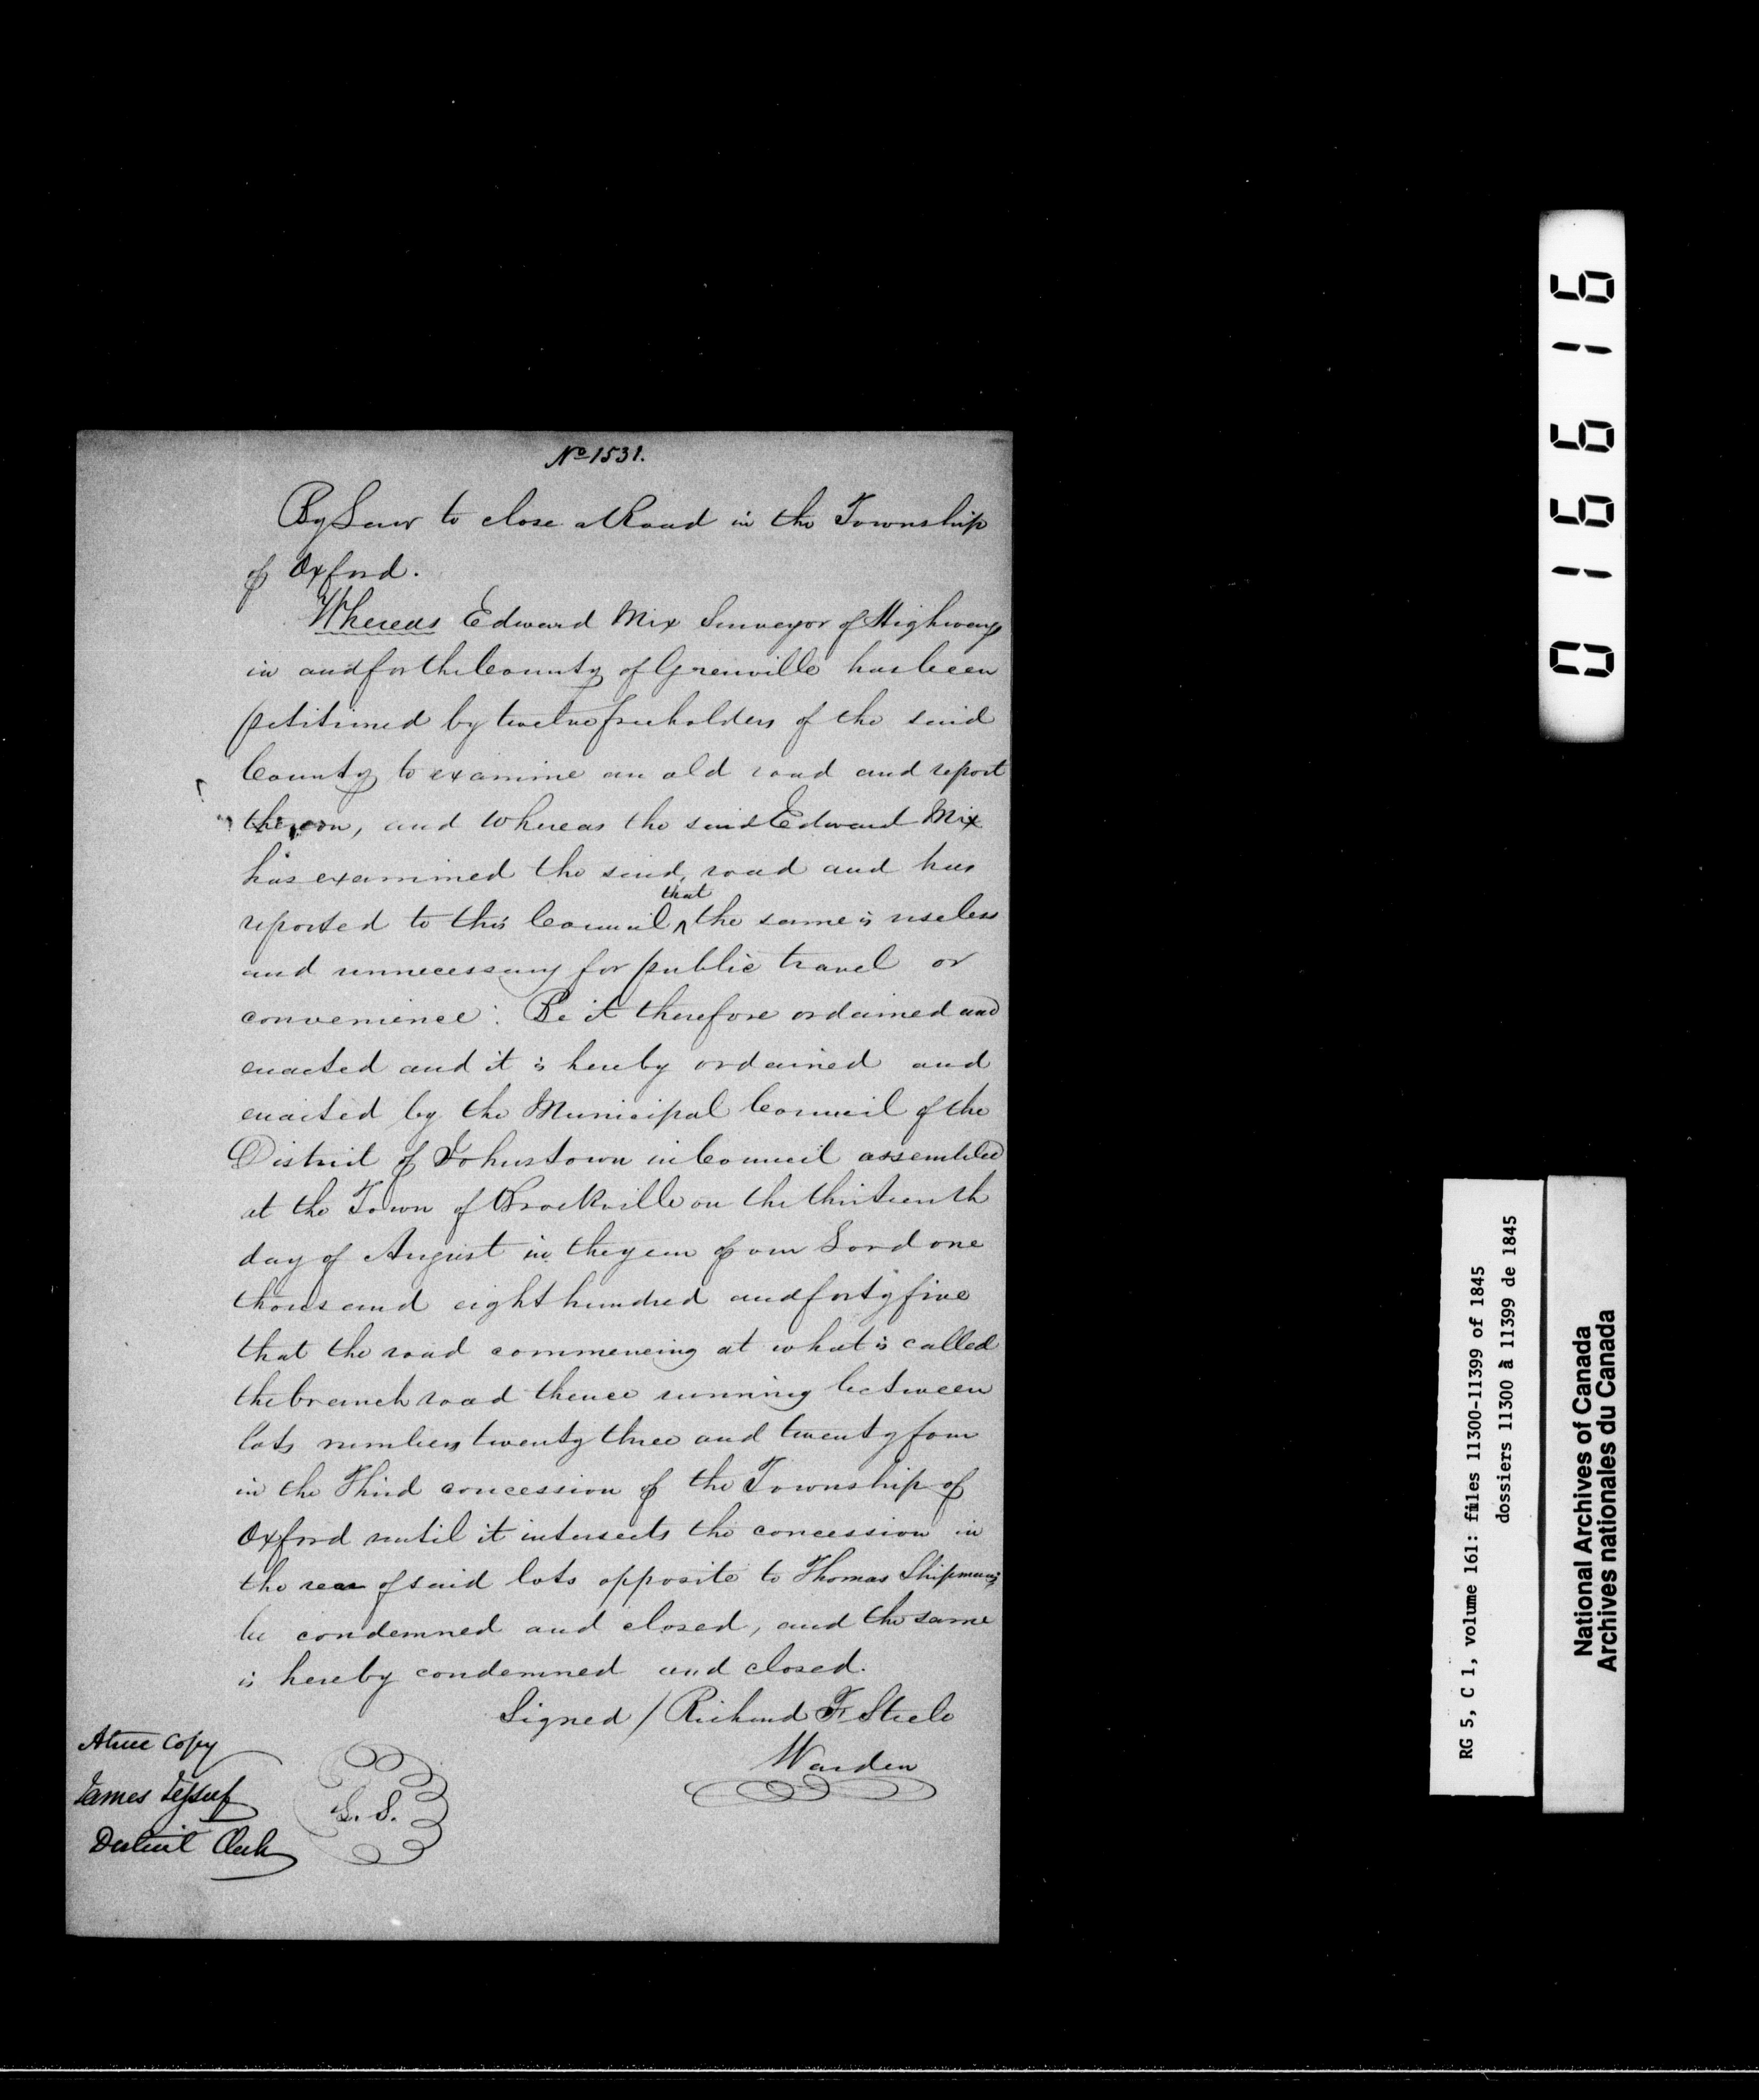 No 1531.
By Law to close a Road in the Township
of Oxford.
Whereas Edward Mix Surveyor of Highways
in and for the County of Grenville has been
petitioned by twelve freeholders of the said
County to examine an old road and report
thereon, and Whereas the said Edward Mix
has examined the said road and has
reported to this Council ^that the same is useless
and unnecessary for public travel or
convenience: Be it therefore ordained and
enacted and it is hereby ordained and
enacted by the Municipal Council of the
District of Johnstown in Council assembled
at the Town of Brockville on the thirteenth
day of August in the year of our Lord one
thousand eight hundred and forty five
that the road commencing at what is called
the branch road thence running between
lots numbers twenty three and twenty four
in the Third concession of the Township of
Oxford until it intersects the concession in
the rear of said lots opposite to Thomas Shipman's
be condemned and closed, and the same
is hereby condemned and closed.
Signed / Richard F. Steele
Warden
A true Copy
James Jessup
District Clerk
L. S.
016616
RG 5, C 1, volume 161: files 11300-11399 of 1845
dossiers 11300 à 11399 de 1845
National Archives of Canada
Archives nationales du Canada